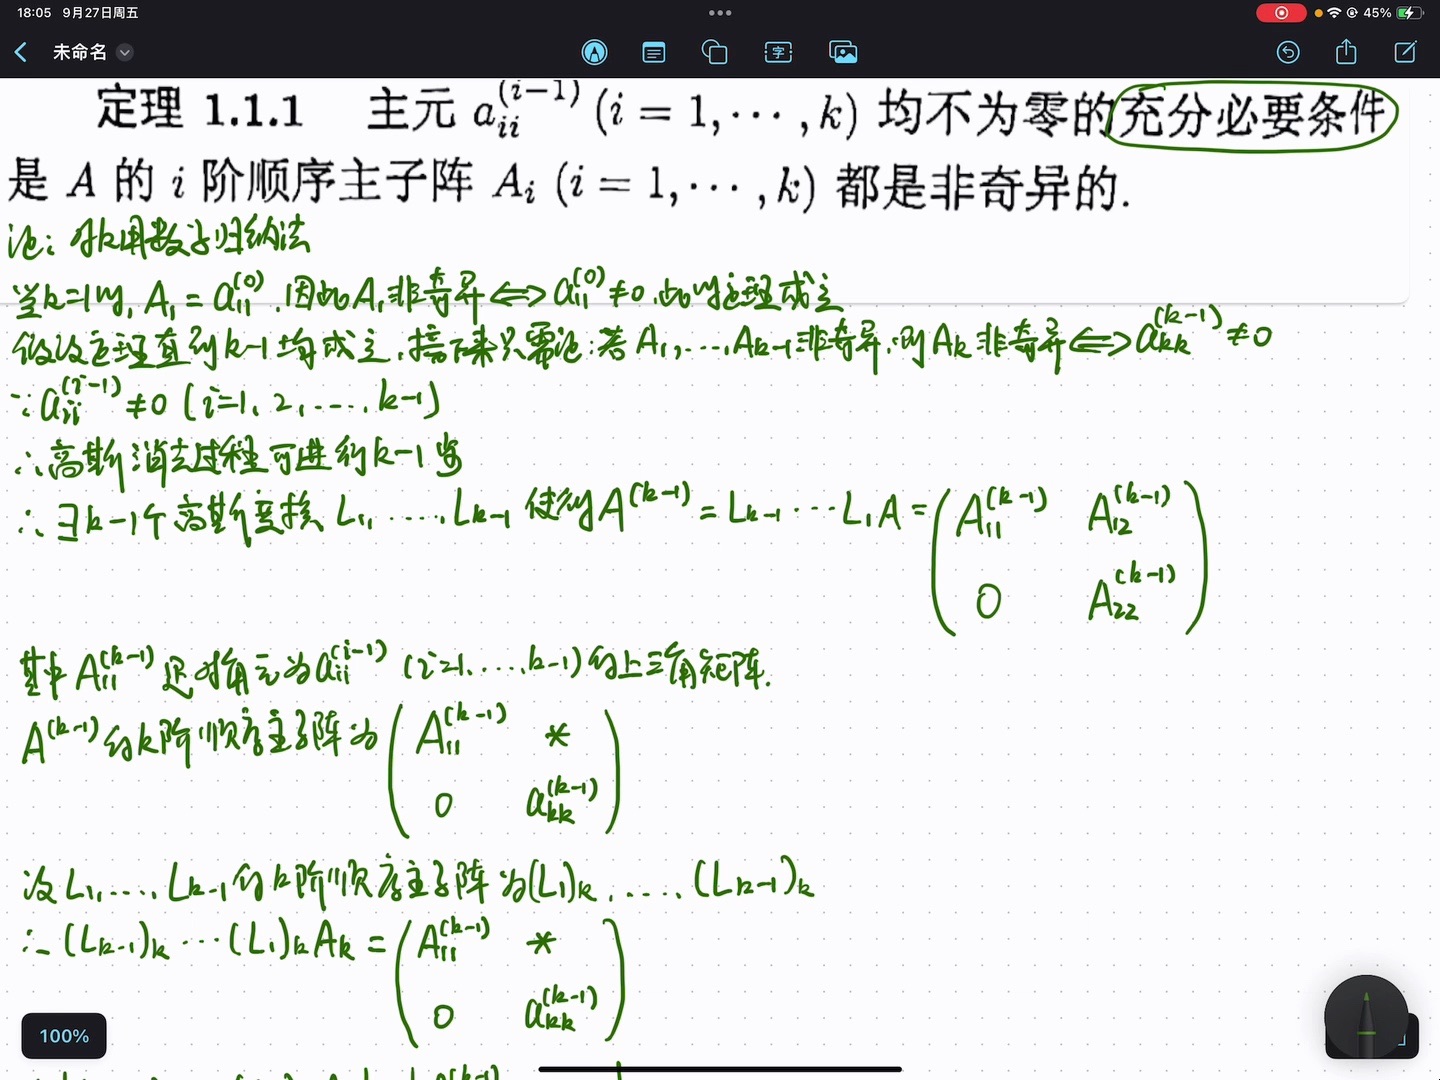 18:05 9月27日周五
45%
未命名
定理 1.1.1 主元 a_{ii}^{(i-1)} (i = 1, ⋯ , k) 均不为零的充分必要条件
是 A 的 i 阶顺序主子阵 A_i (i = 1, ⋯ , k) 都是非奇异的.
证: 对k用数学归纳法
当k=1时, A_1 = a_{11}^{(0)}. 因此A_1非奇异 ⟺ a_{11}^{(0)} ≠ 0. 此时定理成立
假设定理直到k-1均成立, 接下来只需证: 若 A_1, …, A_{k-1}非奇异, 则A_k非奇异 ⟺ a_{kk}^{(k-1)} ≠ 0
∵ a_{ii}^{(i-1)} ≠ 0 (i=1, 2, …, k-1)
∴ 高斯消去过程可进行k-1步
∴ ∃ k-1个高斯变换 L_1, …, L_{k-1} 使得 A^{(k-1)} = L_{k-1} ⋯ L_1 A = \begin{pmatrix} A_{11}^{(k-1)} & A_{12}^{(k-1)} \\ 0 & A_{22}^{(k-1)} \end{pmatrix}
其中 A_{11}^{(k-1)} 是对角元为 a_{ii}^{(i-1)} (i=1, …, k-1) 的上三角矩阵.
A^{(k-1)} 的k阶顺序主子阵为 \begin{pmatrix} A_{11}^{(k-1)} & * \\ 0 & a_{kk}^{(k-1)} \end{pmatrix}
设 L_1, …, L_{k-1} 的k阶顺序主子阵为 (L_1)_k, …, (L_{k-1})_k
∴ (L_{k-1})_k ⋯ (L_1)_k A_k = \begin{pmatrix} A_{11}^{(k-1)} & * \\ 0 & a_{kk}^{(k-1)} \end{pmatrix}
100%